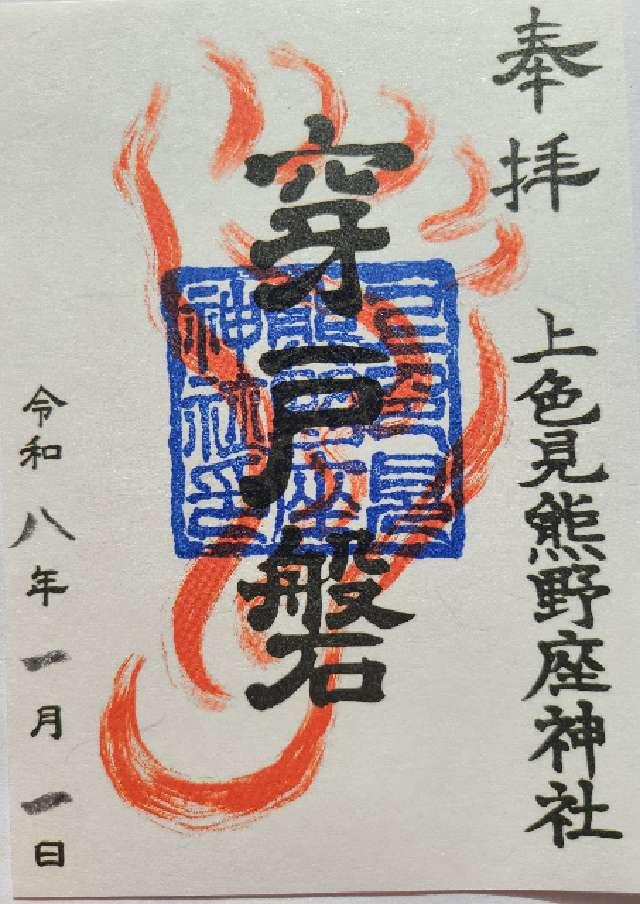 奉拝
上色見熊野座神社
穿戸磐
上色見
熊野座
神社印
令和八年一月一日